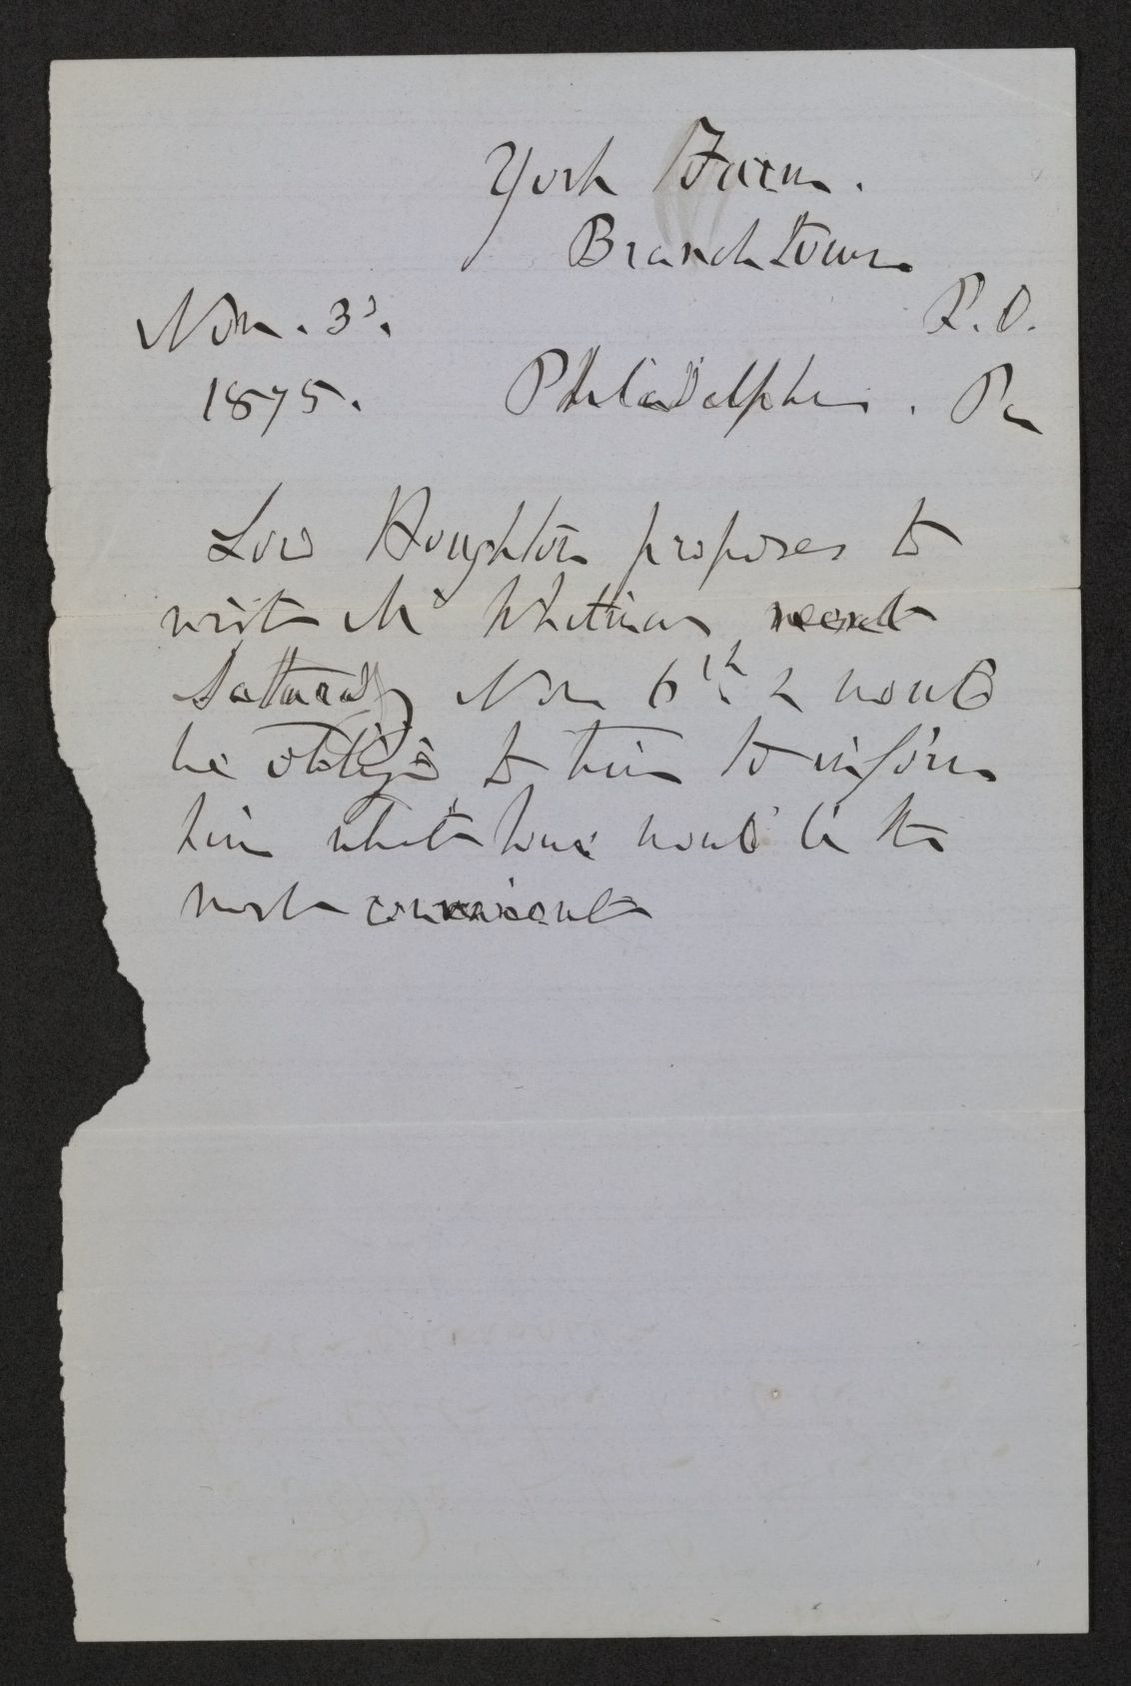 York Farm.
Branchtown
P. O.
Nov. 3d.
1875. Philadelphia. Pa
Lord Houghton proposes to
visit Mr Whitman next
Satturday Nov 6th. & would
be obliged to him to inform
him what hour would be the
most convenient